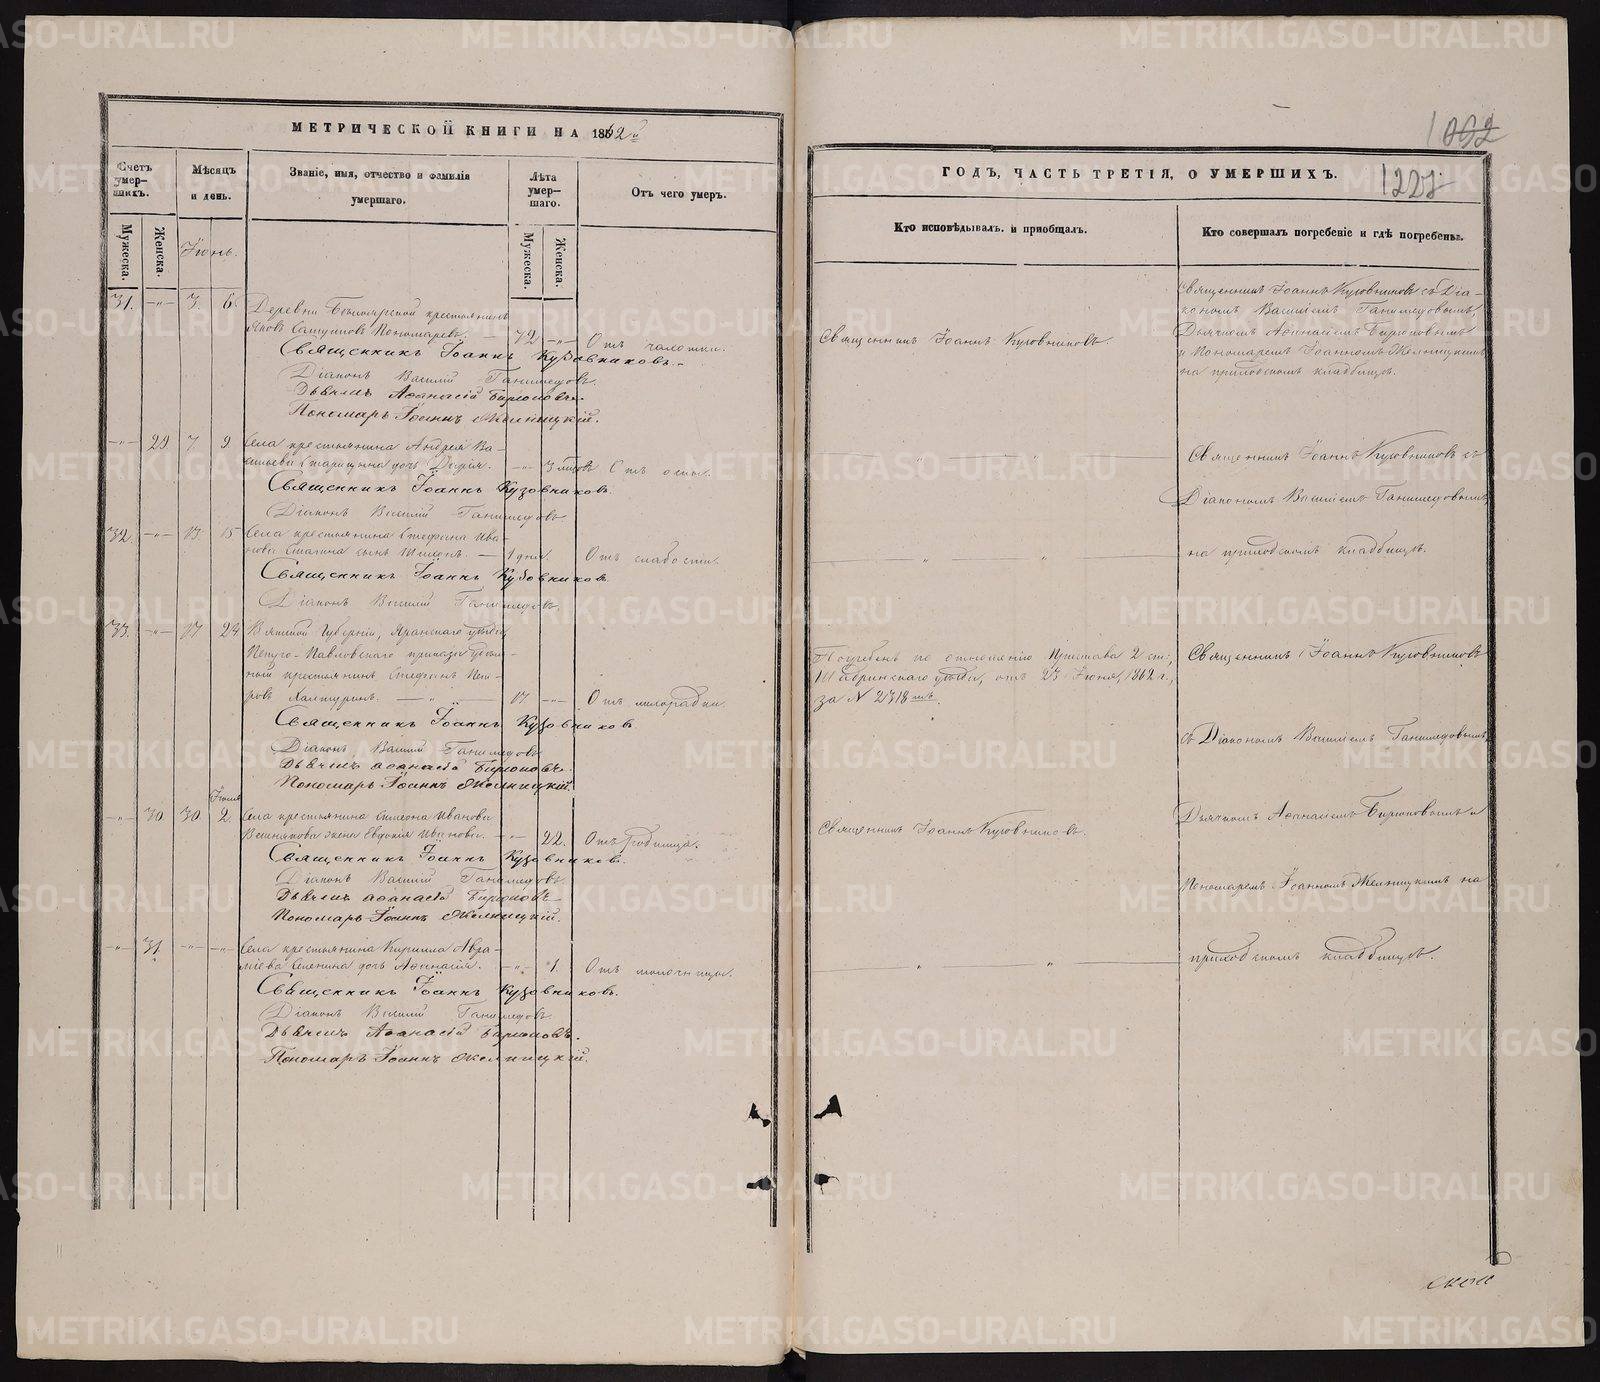 МЕТРИЧЕСКОЙ КНИГИ НА 1862й
Счетъ умер-шихъ.
Мѣсяцъ и день.
Званіе, имя, отчество и фамилія умершаго.
Лѣта умер-шаго.
Отъ чего умеръ.
Мужеска.
Женска.
Мужеска.
Женска.
Іюнь.
31. —„— 3. 6. Деревни крестьянинъ
Яковъ Пономаревъ. — 72 —„— Отъ чахотки.
Священникъ Іоаннъ Кузовниковъ.
Діаконъ Василій Ганимедовъ.
Дьячекъ Аѳанасій Бирюковъ.
Пономарь Іоаннъ Желницкій.
—„— 29. 7. 9. Села крестьянина Андрея Ва-
сильева дочь Дарія. —„— 3 Отъ оспы.
Священникъ Іоаннъ Кузовниковъ.
Діаконъ Василій Ганимедовъ
32. —„— 13. 15. Села крестьянина Стефана Ива-
нова сынъ — 1 дня. Отъ слабости.
Священникъ Іоаннъ Кузовниковъ
Діаконъ Василій Ганимедовъ
33. —„— 17 24. Вятской Губерніи, Яранскаго уѣзда,
Павловскаго приказа
крестьянинъ Стефанъ Пет-
ровъ Халтуринъ. — „ — 17 —„— Отъ лихорадки.
Священникъ Іоаннъ Кузовниковъ
Діаконъ Василій Ганимедовъ
Дьячекъ Аѳанасій Бирюковъ.
Пономарь Іоаннъ Желницкій.
Іюля
—„— 30. 30. 2. Села крестьянина Симеона Иванова
жена Евдокія Иванова. —„— 22. Отъ
Священникъ Іоаннъ Кузовниковъ.
Діаконъ Василій Ганимедовъ
Дьячекъ Аѳанасій Бирюковъ
Пономарь Іоаннъ Желницкій.
—„— 31. —„— —„— Села крестьянина Кирилла Авра-
міева дочь Аѳанасія. —„— 1. Отъ молочницы.
Священникъ Іоаннъ Кузовниковъ.
Діаконъ Василій Ганимедовъ.
Дьячекъ Аѳанасій Бирюковъ.
Пономарь Іоаннъ Желницкій.
1227
ГОДЪ, ЧАСТЬ ТРЕТІЯ, О УМЕРШИХЪ.
Кто исповѣдывалъ и пріобщалъ.
Кто совершалъ погребеніе и гдѣ погребены.
Священникъ Іоаннъ Кузовниковъ.
Священникъ Іоаннъ Кузовниковъ съ Діа-
кономъ Василіемъ Ганимедовымъ,
Дьячкомъ Аѳанасіемъ Бирюковымъ
и Пономаремъ Іоанномъ Желницкимъ
на приходскомъ кладбищѣ.
Священникъ Іоаннъ Кузовниковъ съ
Діакономъ Василіемъ Ганимедовымъ
на приходскомъ кладбищѣ.
Погребенъ по отношенію Пристава 2 ст:,
Шадринскаго уѣзда, отъ 23 Іюня, 1862 г.,
за N 2318мъ.
Священникъ Іоаннъ Кузовниковъ
съ Діакономъ Василіемъ Ганимедовымъ,
Священникъ Іоаннъ Кузовниковъ.
Дьячкомъ Аѳанасіемъ Бирюковымъ и
Пономаремъ Іоанномъ Желницкимъ на
приходскомъ кладбищѣ.
METRIKI.GASO-URAL.RU